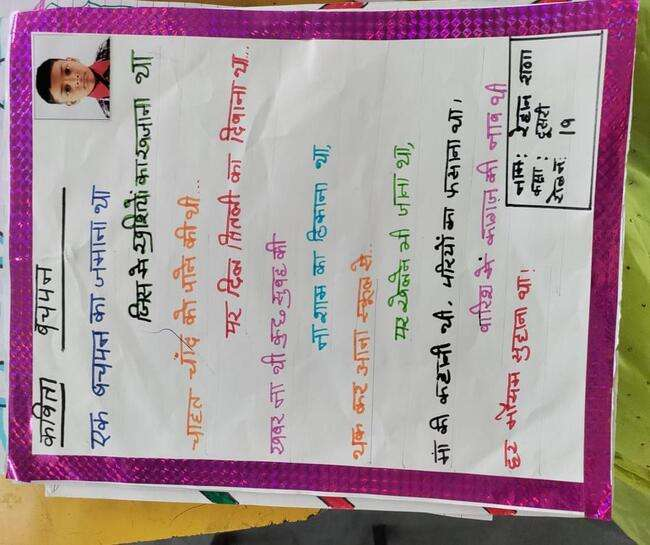 कविता बचपन
एक बचपन का जमाना था
जिस मे खुशियों का खजाना था
चाहत चाँद को पाने की थी...
पर दिल तितली का दिवाना था...
खबर ना थी कुछ सुबह की
ना शाम का ठिकाना था,
थक कर आना स्कूल से..
पर खेलने भी जाना था,
माँ की कहानी थी, परियों का फसाना था।
बारिश में कागज़ की नाव थी
हर मौसम सुहाना था।
नाम: रेहान
कक्षा: दूसरी
रोल न. 19